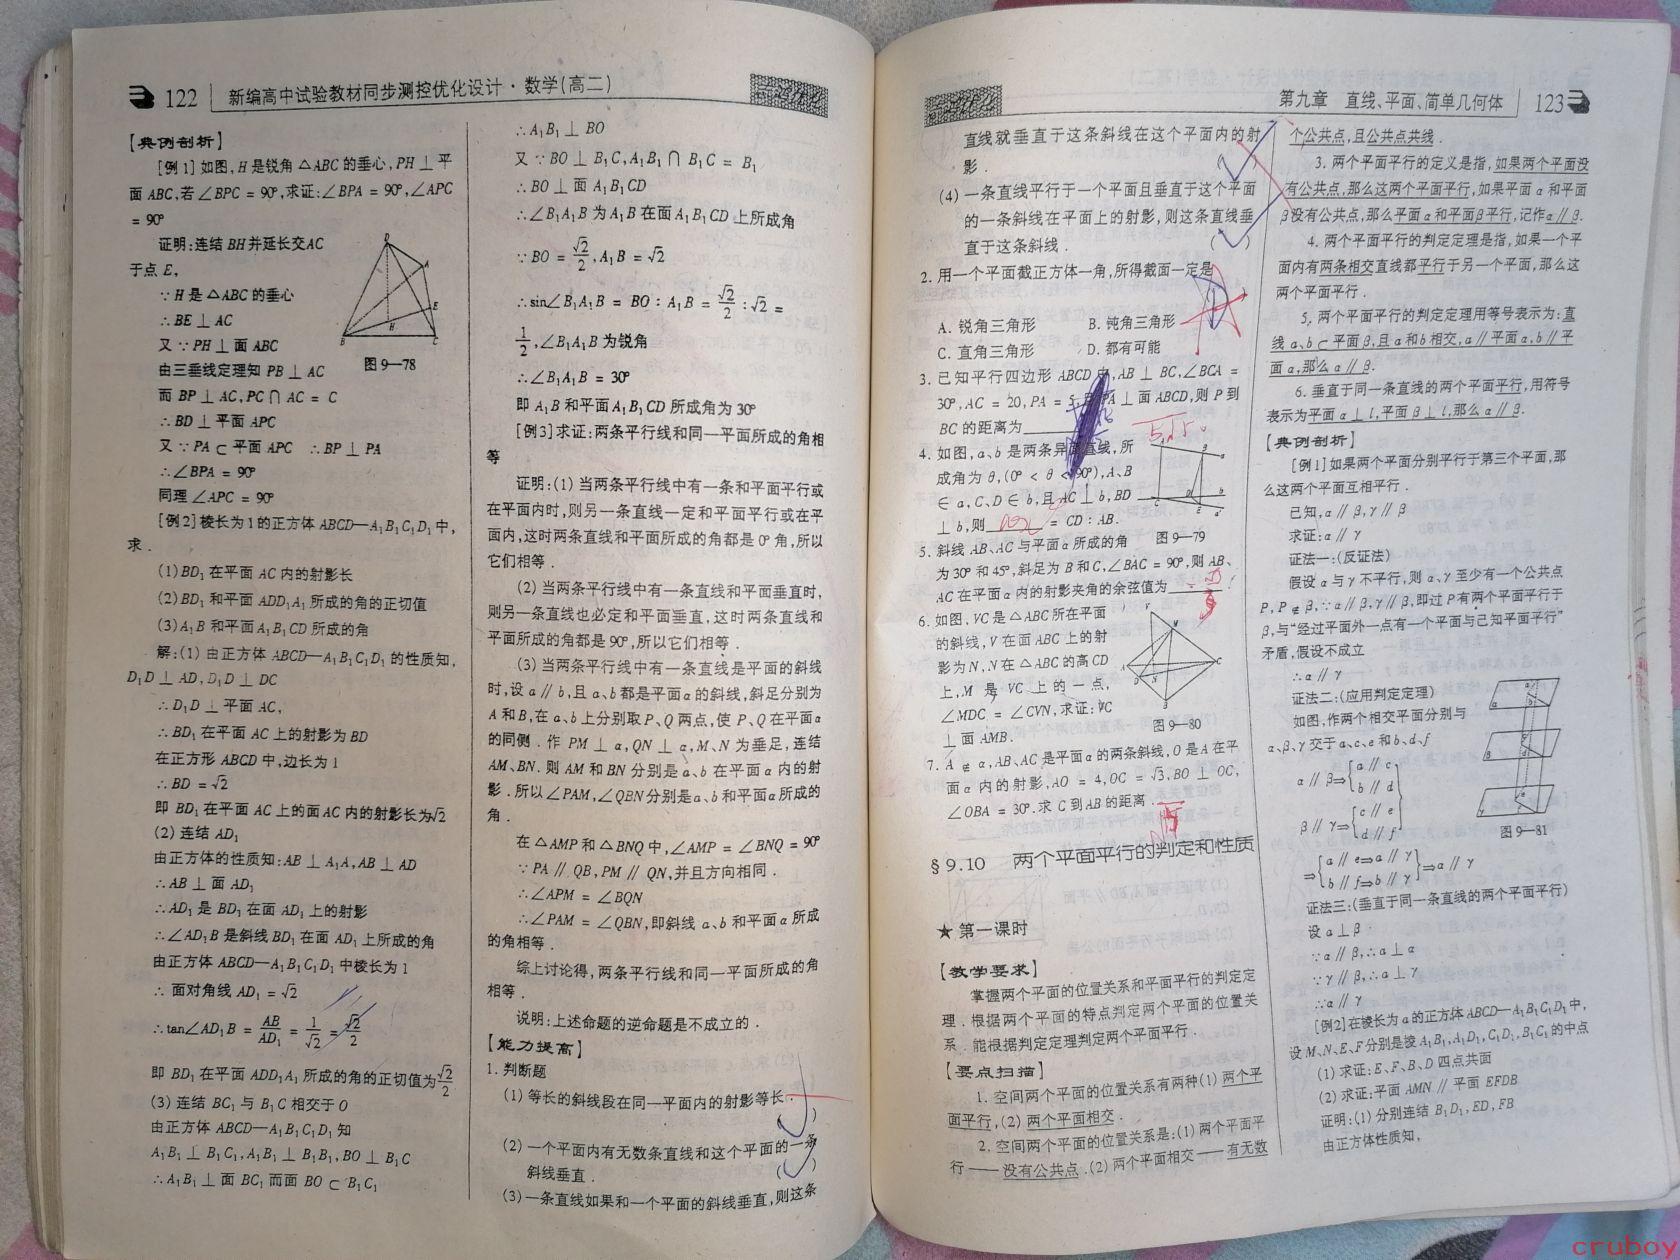 122 新编高中试验教材同步测控优化设计·数学(高二)
【典例剖析】
[例1]如图,H是锐角△ABC的垂心,PH⊥平
面ABC,若∠BPC = 90°,求证:∠BPA = 90°,∠APC
= 90°
证明:连结BH并延长交AC
于点E,
∵H是△ABC的垂心
∴BE⊥AC
又∵PH⊥面ABC
由三垂线定理知PB⊥AC
而BP⊥AC,PC∩AC = C
∴BD⊥平面APC
又∵PA⊂平面APC ∴BP⊥PA
∴∠BPA = 90°
同理∠APC = 90°
图9—78
[例2]棱长为1的正方体ABCD—A₁B₁C₁D₁中,
求.
(1)BD₁在平面AC内的射影长
(2)BD₁和平面ADD₁A₁所成的角的正切值
(3)A₁B和平面A₁B₁CD所成的角
解:(1)由正方体ABCD—A₁B₁C₁D₁的性质知,
D₁D⊥AD,D₁D⊥DC
∴D₁D⊥平面AC,
∴BD₁在平面AC上的射影为BD
在正方形ABCD中,边长为1
∴BD = √2
即BD₁在平面AC上的面AC内的射影长为√2
(2)连结AD₁
由正方体的性质知:AB⊥A₁A,AB⊥AD
∴AB⊥面AD₁
∴AD₁是BD₁在面AD₁上的射影
∴∠AD₁B是斜线BD₁在面AD₁上所成的角
由正方体ABCD—A₁B₁C₁D₁中棱长为1
∴面对角线AD₁ = √2
∴tan∠AD₁B = AB/AD₁ = 1/√2 = √2/2
即BD₁在平面ADD₁A₁所成的角的正切值为√2/2
(3)连结BC₁与B₁C相交于O
由正方体ABCD—A₁B₁C₁D₁知
A₁B₁⊥B₁C₁,A₁B₁⊥B₁B₁,BO⊥B₁C
∴A₁B₁⊥面BC₁而面BO⊂B₁C₁
∴A₁B₁⊥BO
又∵BO⊥B₁C,A₁B₁∩B₁C = B₁
∴BO⊥面A₁B₁CD
∴∠B₁A₁B为A₁B在面A₁B₁CD上所成角
∵BO = √2/2,A₁B = √2
∴sin∠B₁A₁B = BO∶A₁B = √2/2∶√2 =
1/2,∠B₁A₁B为锐角
∴∠B₁A₁B = 30°
即A₁B和平面A₁B₁CD所成角为30°
[例3]求证:两条平行线和同一平面所成的角相
等
证明:(1)当两条平行线中有一条和平面平行或
在平面内时,则另一条直线一定和平面平行或在平
面内,这时两条直线和平面所成的角都是0°角,所以
它们相等.
(2)当两条平行线中有一条直线和平面垂直时,
则另一条直线也必定和平面垂直,这时两条直线和
平面所成的角都是90°,所以它们相等.
(3)当两条平行线中有一条直线是平面的斜线
时,设a∥b,且a、b都是平面α的斜线,斜足分别为
A和B,在a、b上分别取P、Q两点,使P、Q在平面α
的同侧.作PM⊥α,QN⊥α,M、N为垂足,连结
AM、BN.则AM和BN分别是a、b在平面α内的射
影.所以∠PAM,∠QBN分别是a、b和平面α所成的
角.
在△AMP和△BNQ中,∠AMP = ∠BNQ = 90°
∵PA∥QB,PM∥QN,并且方向相同.
∴∠APM = ∠BQN
∴∠PAM = ∠QBN,即斜线a、b和平面α所成
的角相等.
综上讨论得,两条平行线和同一平面所成的角
相等.
说明:上述命题的逆命题是不成立的.
【能力提高】
1.判断题
(1)等长的斜线段在同一平面内的射影等长.
( )
(2)一个平面内有无数条直线和这个平面的一条
斜线垂直. ( )
(3)一条直线如果和一个平面的斜线垂直,则这条
第九章 直线、平面、简单几何体 123
直线就垂直于这条斜线在这个平面内的射
影. ( )
(4)一条直线平行于一个平面且垂直于这个平面
的一条斜线在平面上的射影,则这条直线垂
直于这条斜线. ( )
2.用一个平面截正方体一角,所得截面一定是
A.锐角三角形 B.钝角三角形
C.直角三角形 D.都有可能
3.已知平行四边形ABCD中,AB⊥BC,∠BCA =
30°,AC = 20,PA = 5,且PA⊥面ABCD,则P到
BC的距离为 5√5.
4.如图,a、b是两条异面直线,所
成角为θ,(0° < θ < 90°),A、B
∈a,C、D∈b,且AC⊥b,BD
⊥b,则 cosθ = CD∶AB.
图9—79
5.斜线AB、AC与平面α所成的角
为30°和45°,斜足为B和C,∠BAC = 90°,则AB、
AC在平面α内的射影夹角的余弦值为
6.如图,VC是△ABC所在平面
的斜线,V在面ABC上的射
影为N,N在△ABC的高CD
上,M是VC上的一点,
∠MDC = ∠CVN,求证:VC
⊥面AMB.
图9—80
7.A∉α,AB、AC是平面α的两条斜线,O是A在平
面α内的射影,AO = 4,OC = √3,BO⊥OC,
∠OBA = 30°.求C到AB的距离.
§9.10 两个平面平行的判定和性质
★第一课时
【教学要求】
掌握两个平面的位置关系和平面平行的判定定
理.根据两个平面的特点判定两个平面的位置关
系.能根据判定定理判定两个平面平行.
【要点扫描】
1.空间两个平面的位置关系有两种(1)两个平
面平行,(2)两个平面相交.
2.空间两个平面的位置关系是:(1)两个平面平
行——没有公共点.(2)两个平面相交——有无数
个公共点,且公共点共线.
3.两个平面平行的定义是指,如果两个平面没
有公共点,那么这两个平面平行,如果平面α和平面
β没有公共点,那么平面α和平面β平行,记作α∥β.
4.两个平面平行的判定定理是指,如果一个平
面内有两条相交直线都平行于另一个平面,那么这
两个平面平行.
5.两个平面平行的判定定理用等号表示为:直
线a、b⊂平面β,且a和b相交,a∥平面α,b∥平
面α,那么α∥β.
6.垂直于同一条直线的两个平面平行,用符号
表示为平面α⊥l,平面β⊥l,那么α∥β.
【典例剖析】
[例1]如果两个平面分别平行于第三个平面,那
么这两个平面互相平行.
已知,α∥β,γ∥β
求证:α∥γ
证法一:(反证法)
假设α与γ不平行,则α、γ至少有一个公共点
P,P∉β,∵α∥β,γ∥β,即过P有两个平面平行于
β,与“经过平面外一点有一个平面与已知平面平行”
矛盾,假设不成立
∴α∥γ
证法二:(应用判定定理)
如图,作两个相交平面分别与
α、β、γ交于a、c、e和b、d、f
α∥β⇒{a∥c
b∥d
β∥γ⇒{c∥e
d∥f
⇒{a∥e⇒a∥γ
b∥f⇒b∥γ}⇒α∥γ
图9—81
证法三:(垂直于同一条直线的两个平面平行)
设a⊥β
∵α∥β,∴a⊥α
∵γ∥β,∴a⊥γ
∴α∥γ
[例2]在棱长为a的正方体ABCD—A₁B₁C₁D₁中,
设M、N、E、F分别是棱A₁B₁、A₁D₁、C₁D₁、B₁C₁的中点
(1)求证:E、F、B、D四点共面
(2)求证:平面AMN∥平面EFDB
证明:(1)分别连结B₁D₁,ED,FB
由正方体性质知,
cruboy